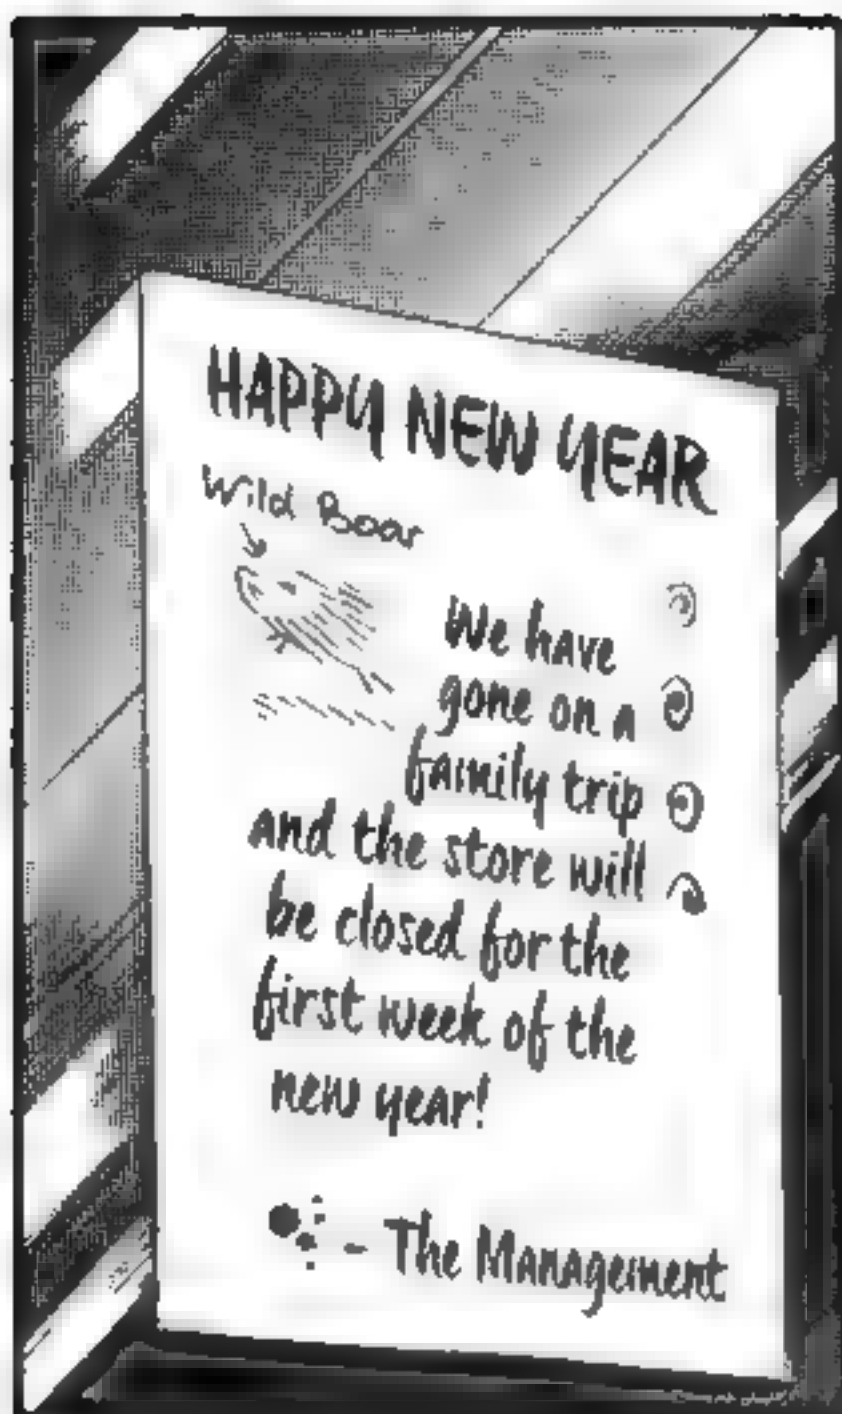 HAPPY NEW YEAR
Wild Boar
We have
gone on a
family trip
and the store will
be closed for the
first week of the
new year!
- The Management